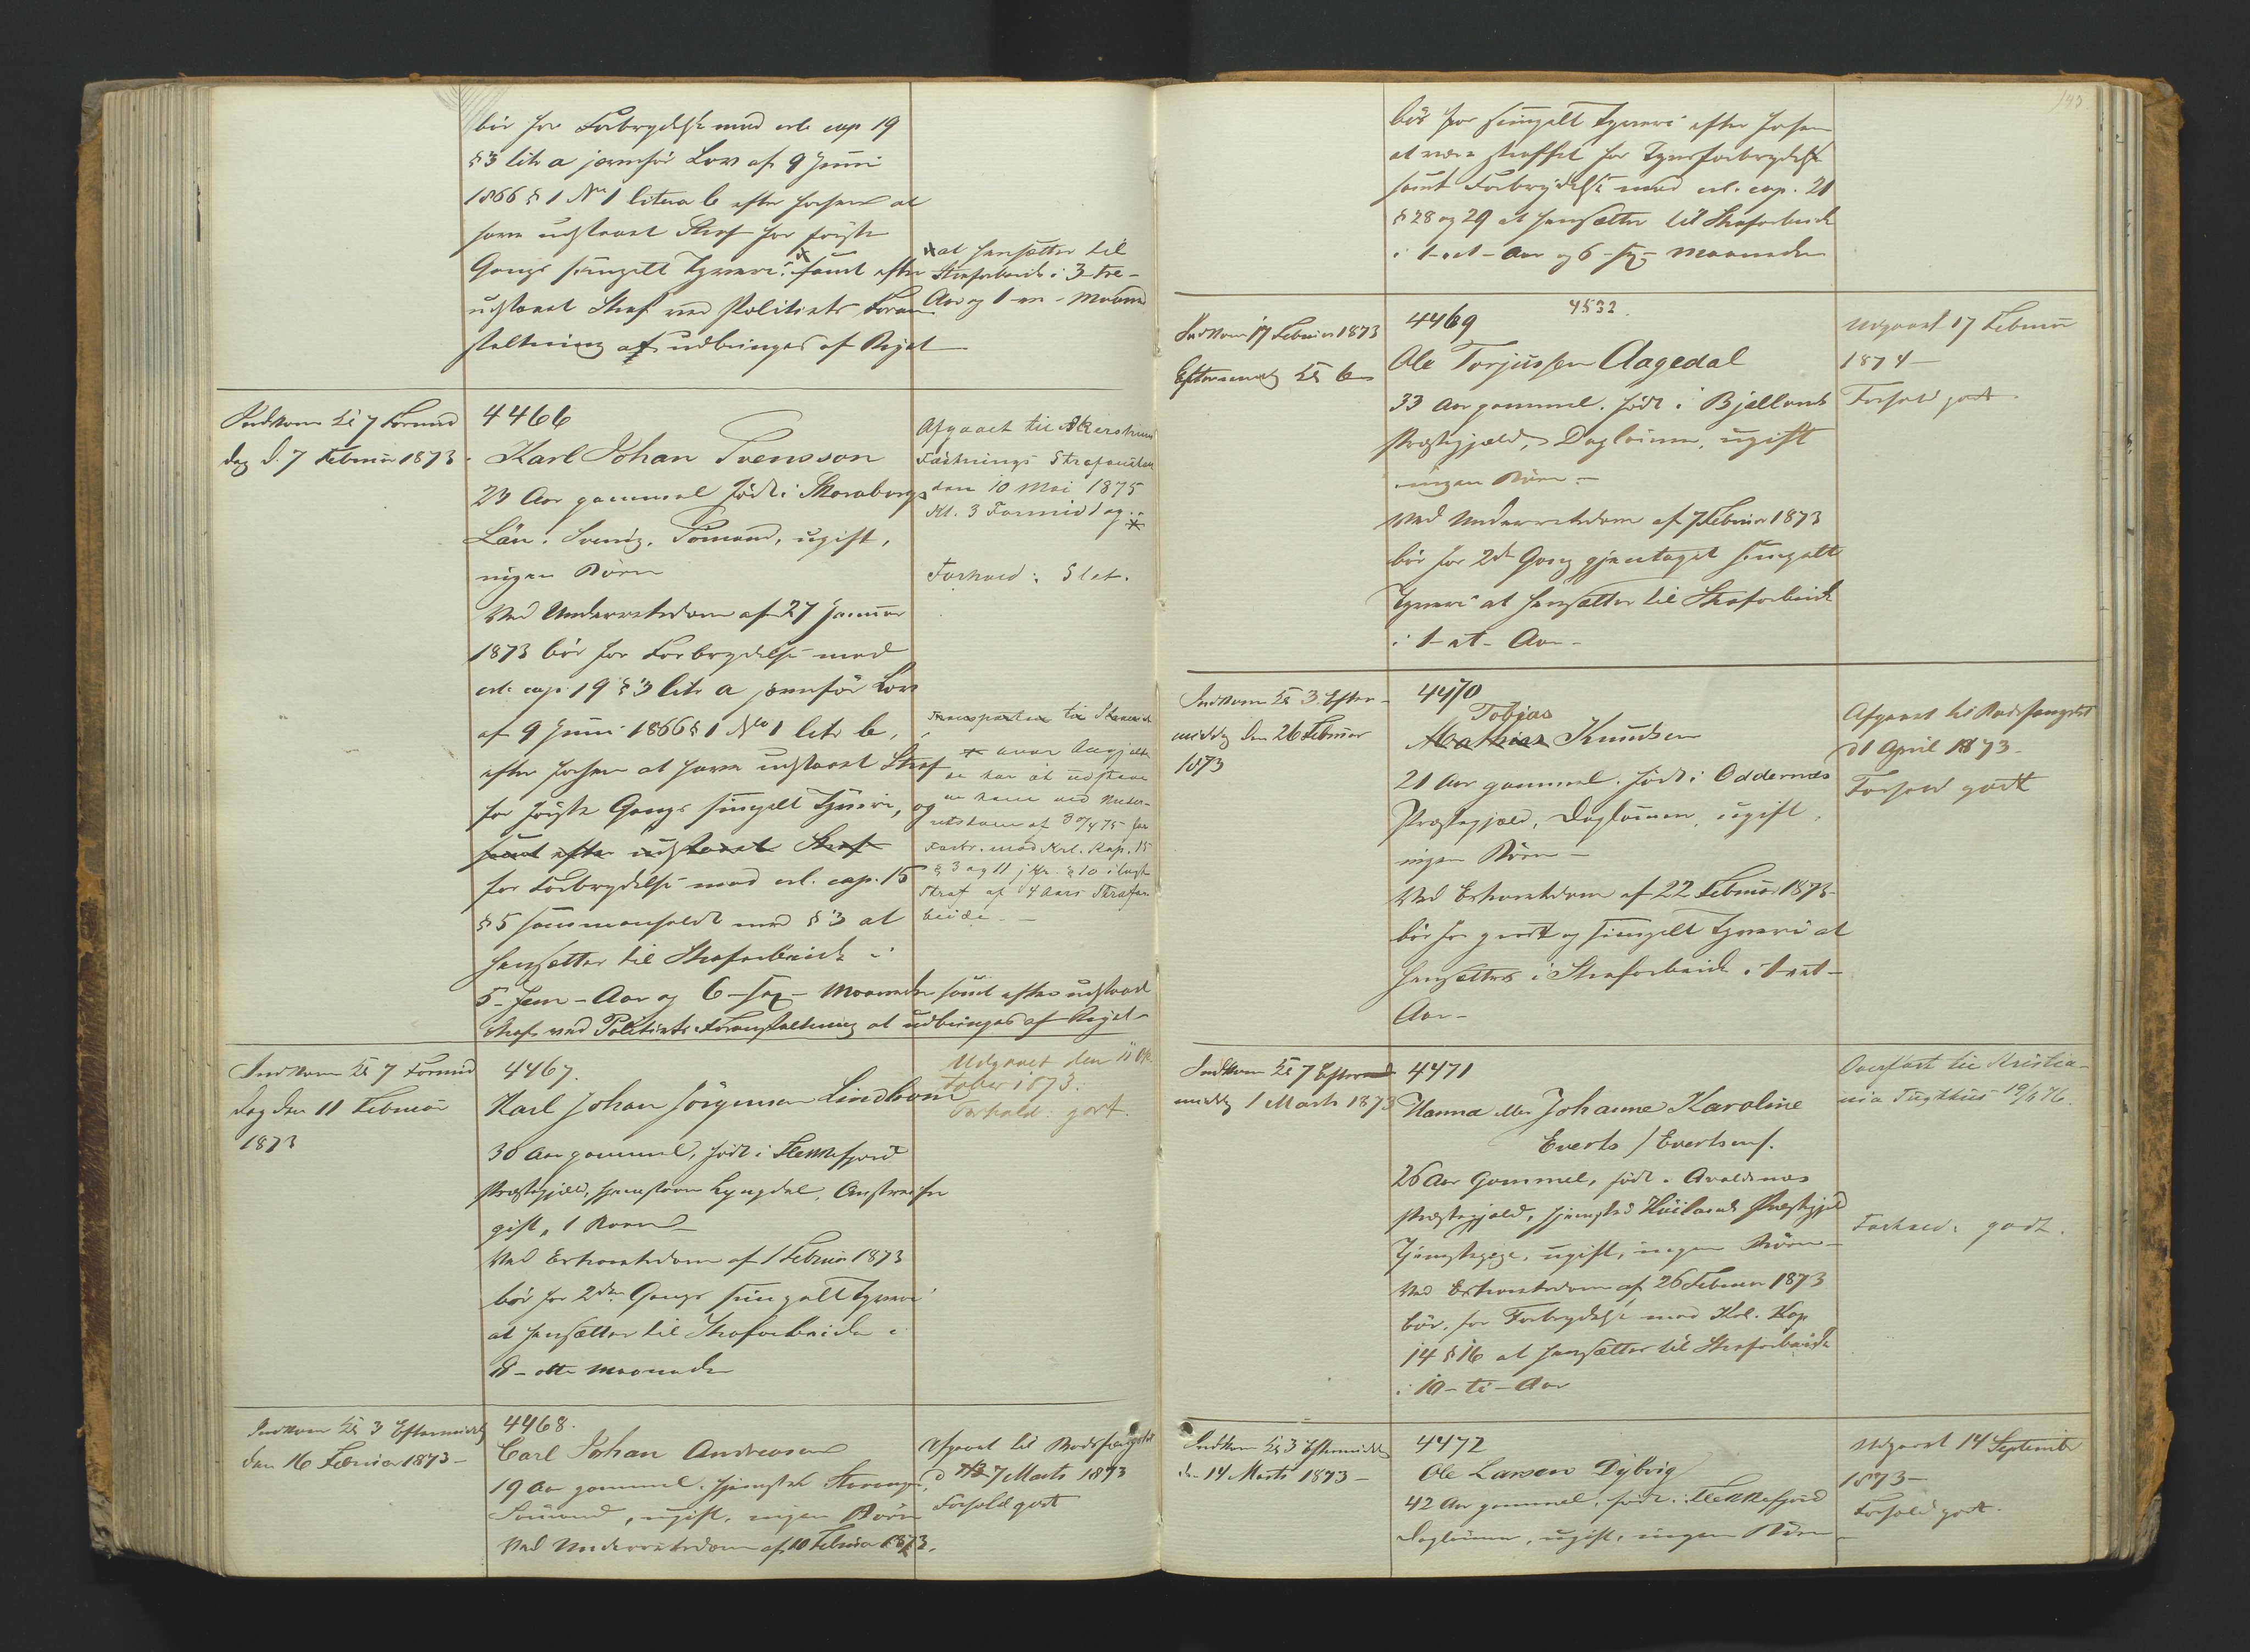 bør for Forbrydelse mod crl. cap 19
§ 3 litr a jevnfør Lov af 9 Juni
1866 § 1 No 1 litera b efter forhen at
have udstaaet Straf for første
Gangs simpelt Tyveri, samt efter
udstaaet Straf ved Politiets Foran
staltning at udbringes af Riget
at hensættes til
Strafarbeide i 3 tre -
Aar og 1 en - Maaned
Indkom Kl 7 Formid
dag d. 7 Februar 1873.
4466
Karl Johan Svensson
23 Aar gammel født i Skaraborgs
Län i Sverig, Sømand, ugift,
ingen Børn
Ved Underretsdom af 27 Januar
1873 bør for Forbrydelse mod
crl. cap. 19 § 3 litr a jevnfør Lov
af 9 Juni 1866 § 1 No 1 litr b,
efter forhen at have udstaaet Straf
for første Gangs simpelt Tyveri, og
samt efter udstaaet Straf
for Forbrydelse mod crl. cap. 15
§ 5 sammenholdt med § 3 at
hensættes til Strafarbeide i
5 - fem - Aar og 6 - sex - Maaneder samt efter udstaaet
Straf ved Politiets Foranstaltning at udbringes af Riget -
Afgaaet til Akershus
Fæstnings Strafanstalt
den 10 Mai 1875
Kl. 3 Formiddag.
Forhold: Slet.
Transporten til
hvor Angjælden
de har at udstaa
en ham ved Under-
retsdom af 30/4 75 for
Forbr. mod Krl. Kap. 15
§ 3 og 11 jfr. § 10 ilagt
Straf af 4 Aars Strafar
beide. -
Indkom Kl 7 Formid
dag den 11 Februar
1873
4467.
Karl Johan Jörgensen Lindbom
30 Aar gammel, født i Flekkefjord
Præstegjæld, hjemstavn Lyngdal,
gift, 1 Barn
Ved Extraretsdom af 1 Februar 1873
bør for 2den Gangs simpelt Tyveri
at hensættes til Strafarbeide i
8 - otte Maaneder
Udgaaet den 11 Ok
tober 1873.
Forhold: godt.
Indkom Kl 3 Eftermiddag
den 16 Februar 1873 -
4468.
Carl Johan Andreasen
19 Aar gammel, hjemsted Stavanger,
Sømand, ugift, ingen Børn
Ved Underretsdom af 10 Februar 1873.
Afgaaet til Bodsfængslet
d 7 Marts 1873
Forhold godt
143.
bør for simpelt Tyveri efter forhen
at være straffet for Tyvsforbrydelse
samt Forbrydelse mod crl. cap. 21
§ 28 og 29 at hensættes til Strafarbeide
i 1 - et - Aar og 6 - sex - Maaneder
Indkom 17 Februar 1873
Eftermiddag Kl 6
4469 4532.
Ole Torjussen Aagedal
33 Aar gammel, født i Bjelland
Præstegjæld, Dagleier, ugift
ingen Børn. -
Ved Underretsdom af 7 Februar 1873
bør for 2det Gang gjentaget simpelt
Tyveri at hensættes til Strafarbeide
i 1 - et - Aar -
Udgaaet 17 Februar
1874 -
Forhold godt.
Indkom Kl 3. Efter -
middag den 26 Februar
1873
4470
Tobias
Mathias Knudsen
21 Aar gammel, født i Oddernes
Præstegjæld, Dagleier, ugift,
ingen Børn -
Ved Extraretsdom af 22 Februar 1873
bør for grovt og simpelt Tyveri at
hensættes i Strafarbeide i 1 - et -
Aar -
Afgaaet til Bodsfængslet
d 1 April 1873 -
Forhold godt
Indkom Kl 7 Efter
middag 1 Marts 1873
4471
Hanna eller Johanne Karoline
Everts / Evertsen /.
26 Aar Gammel, født i Avaldsnes
Præstegjæld, hjemsted Præstegjeld
Tjenestepige, ugift, ingen Børn -
Ved Extraretsdom af 26 Februar 1873
bør, for Forbrydelse mod Krl. Kap
14 § 16 at hensættes til Strafarbeide
i 10 - ti - Aar
Overført til Kristia-
nia Tugthus 19/6 76.
Forhold: godt.
Indkom Kl 3 Eftermiddag
den 14 Marts 1873 -
4472
Ole Larsen Dybvig
42 Aar gammel, født i Flekkefjord
Dagleier, ugift, ingen Børn -
Udgaaet 14 September
1873 -
Forhold godt.